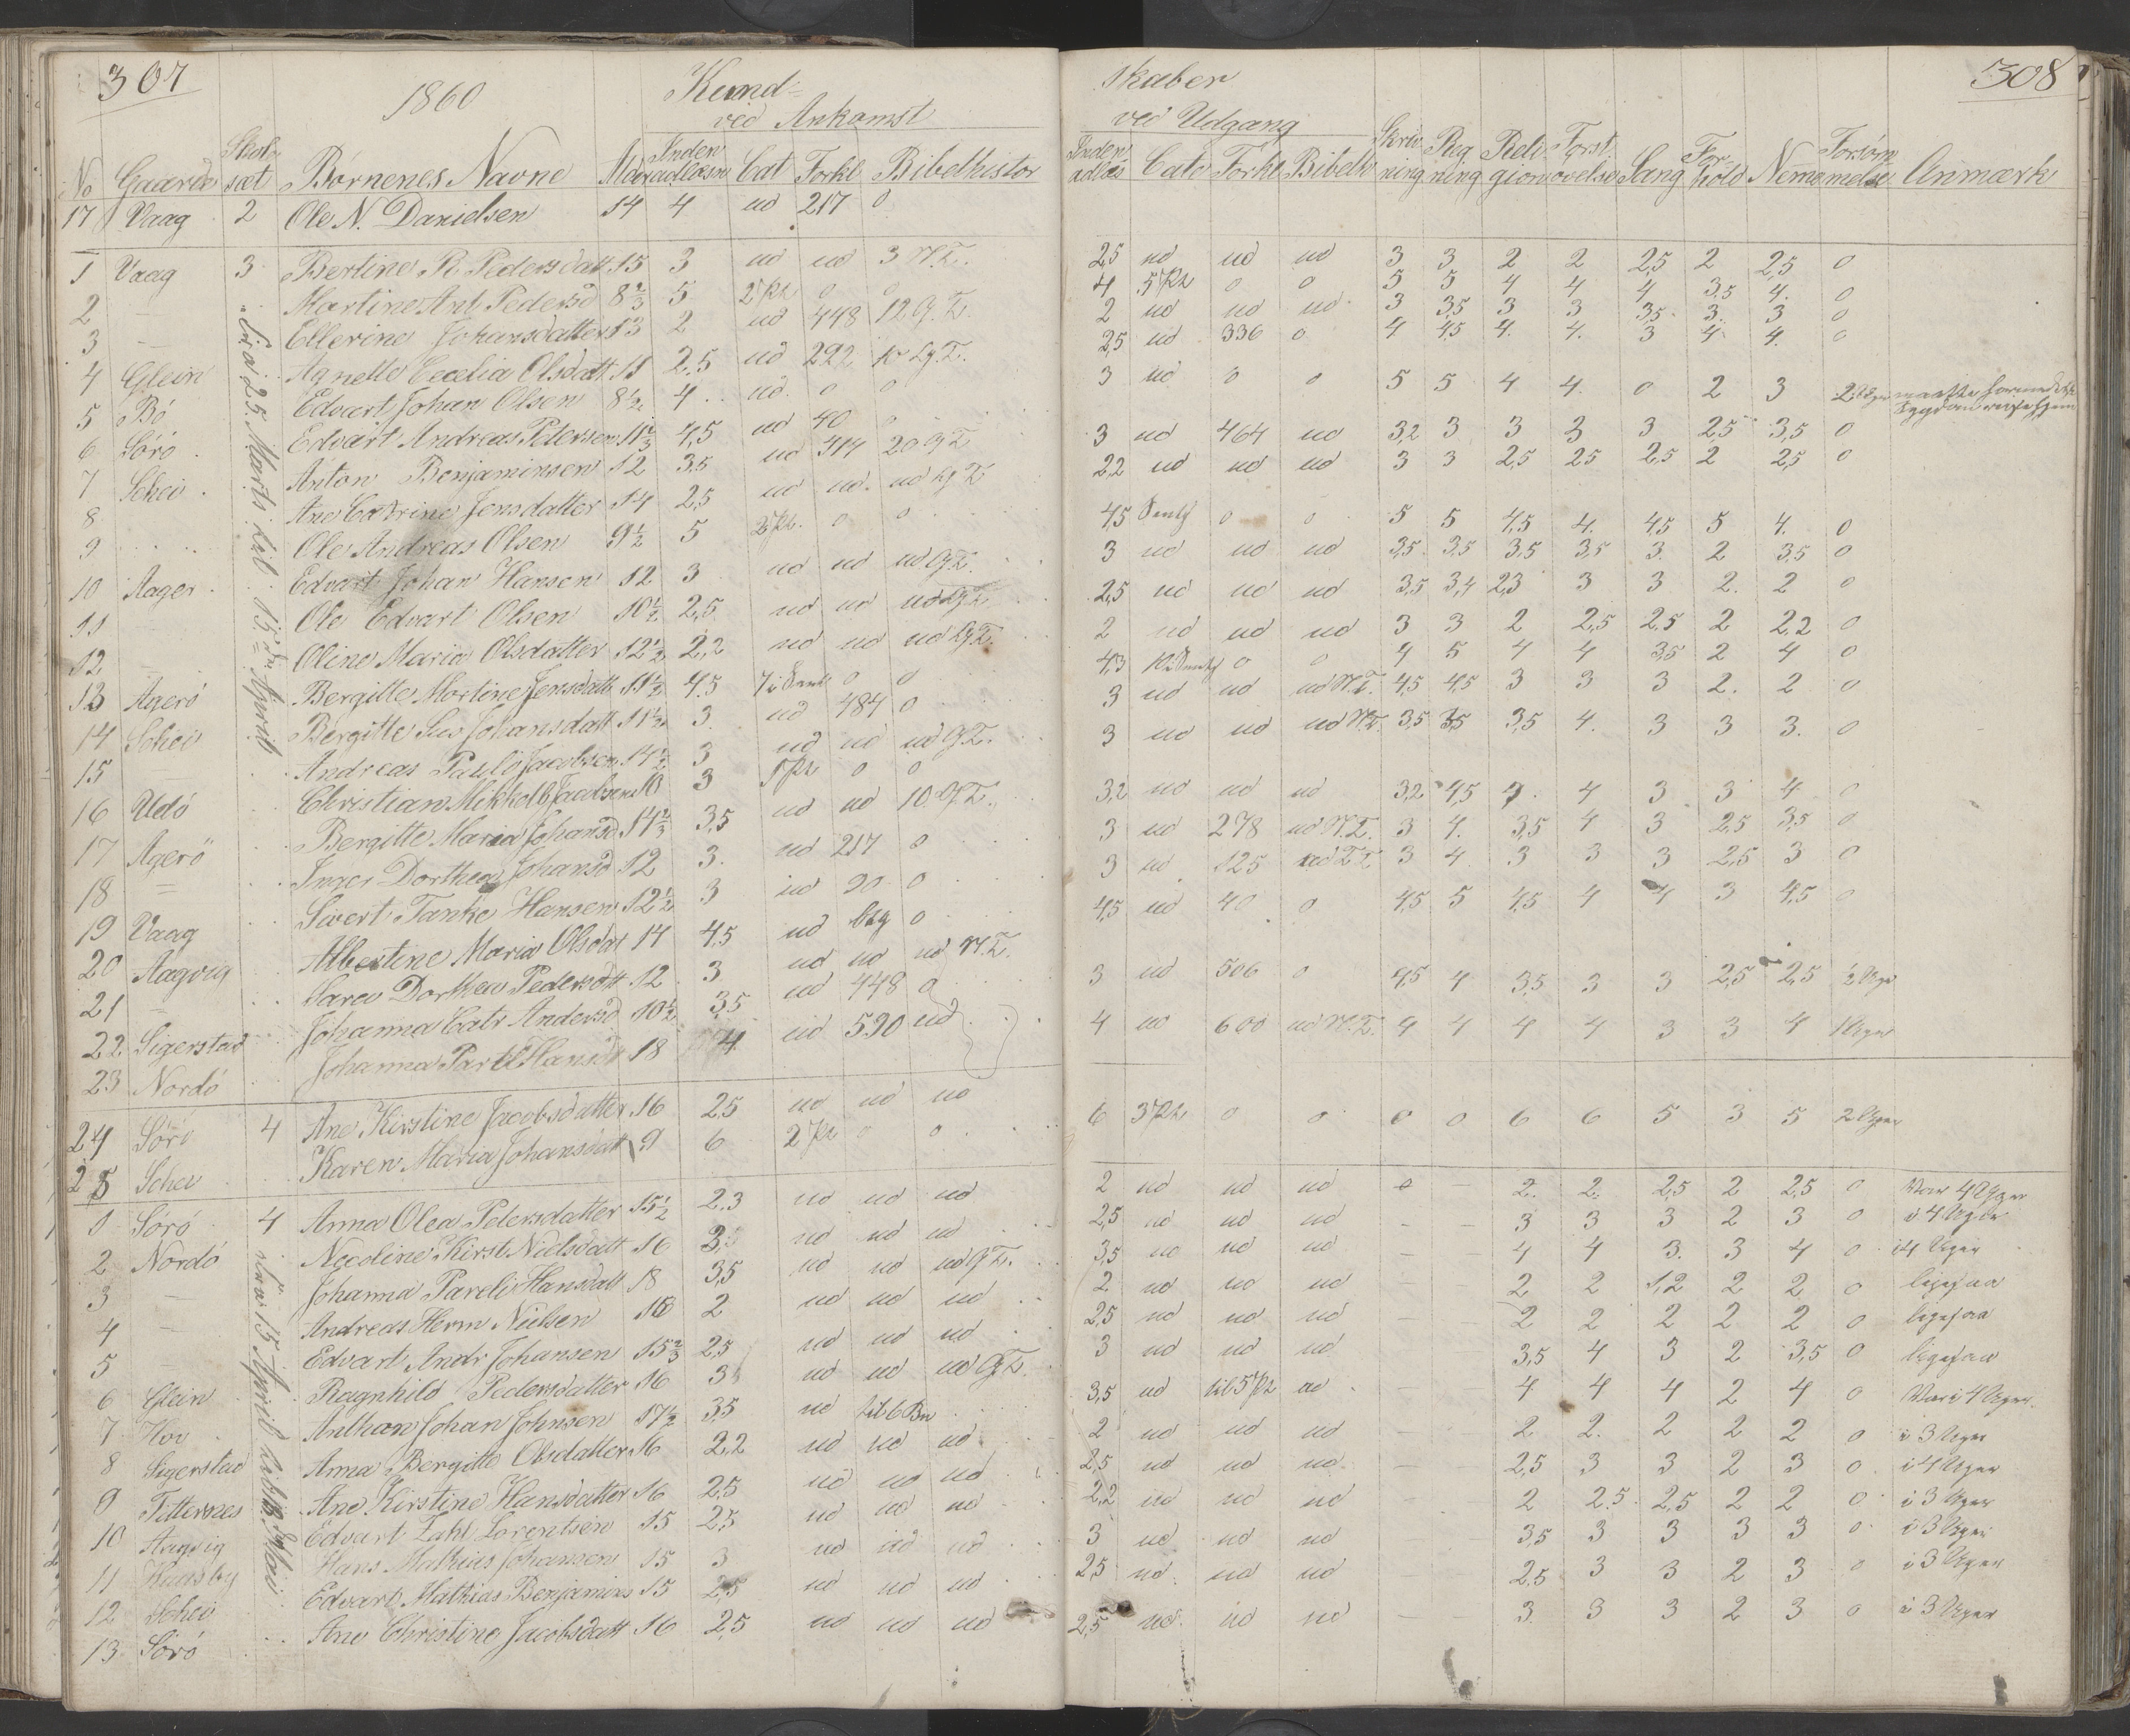 307
1860
Kund=
ved Ankomst
No Gaarde Skole sæt Börnenes Navne Alder Inden adlæsn Cat Forkl Bibelhistor
17 Vaag 2 Ole N. Danielsen 14 4 ud 217 0
1 Vaag 3 Bertine P. Pedersdatt 15 3 ud ud 3 N.T.
2 — Martine Ant. Pedersd 8 2/3 5 2 Pt 0 0
3 — Ellerine Johansdatter 13 2 ud 448 12 G.T.
4 Glein Agnette Cecelia Olsdatt 11 2.5 ud 292 10 G.T.
5 Bö Edvart Johan Olsen 8 1/2 4 ud 0 0
6 Sörö Edvart Andreas Petersen 11 2/3 4,5 ud 40 0
7 Schei Anton Benjaminsen 12 3.5 ud 414 20 G.T
8 Ane Catrine Jensdatter 14 2,5 ud ud ud G.T
9 Ole Andreas Olsen 9 1/2 5 2 Pt. 0 0
10 Aager Edvart Johan Hansen 12 3 ud ud ud G.T.
11 Ole Edvart Olsen 10 1/2 2,5 ud ud ud G.T.
12 — Oline Maria Olsdatter 12 1/2 2,2 ud ud ud G.T.
13 Agerö Bergitte Martine Jensdatt 11 1/2 4.5 0 0
14 Schei Bergitte Johansdatt 11 1/2 3 ud 484 0
15 — Andreas Paulö Jacobsen 14 1/2 3 ud ud ud G.T.
16 Udö Christian Mikkelb Jacobsen 10 3 1 Pt 0 0
17 Agerö Bergitte Maria Johansd 14 2/3 3,5 ud ud 10 G.T.
18 = Inger Dorthea Johansd 12 3. ud 217 0
19 Vaag Sivert Tanke Hansen 12 1/2 3 ud 20 0
20 Aagvig Albertine Maria Olsdat 14 4.5 ud 0
21 — Maren Dorthea Pedersdtt 12 3 ud ud ud N.T.
22 Sigerstad Johanna Catr Andersd 10 1/2 3,5 ud 448 0
23 Nordö Johanna Hansd 18 4 ud 590 ud
24 Sörö 4 Ane Kirstine Jacobsdatter 16 25 ud ud ud
25 Schei Karen Maria Johansdatt 9 6 2 Pt 0 0
fra 25 Marts til 15de April
1 Sörö 4 Anna Olea Petersdatter 15 1/2 2.3 ud ud ud
2 Nordö Nicoline Kirst. Nielsdatt 16 3 ud ud ud
3 — Johanna Pareli Hansdatt 18 3,5 ud ud ud G.T.
4 — Andreas Herm Nielsen 16 2 ud ud ud
5 Edvart Andr Johansen 15 2/3 25 ud ud ud
6 Glein Ragnhild Pedersdatter 16 3 ud ud ud G.T.
7 Hov Anthon Johan Johnsen 17 1/2 3,5 ud til 6 Bn
8 Sigerstad Anna Bergitte Olsdatter 16 2,2 ud ud ud
9 Titternes Ane Kirstine Hansdatter 16 2,5 ud ud ud
10 Aagvig Edvart Zahl Lorentsen 15 2,5 ud ud ud
11 Husby Hans Mathias Johansen 15 3 ud ud ud
12 Schei Edvart Mathias Benjamins 15 2,5 ud ud ud
13 Sörö Ane Christine Jacobsdatt 16 2,5 ud ud ud
fra 15 April Mai
308
skaber
ved Udgang
Inden adlæs Cate Forkl Bibelh Skriv ning Reg ning Reli gion Forst. övelse Sang For hold Nemme Forsöm melse Anmærk
25 ud ud ud 3 3 2 2 2,5 2 2,5 0
4 5 Pt 0 0 5 5 4 4 4 3,5 4. 0
2 ud ud ud 3 3,5 3 3 3,5 3 3 0
2,5 ud 336 0 4 4,5 4. 4. 3 4 4. 0
3 ud 0 0 5 5 4 4. 0 2 3 2 Uger maatte
3 ud 464 ud 3,2 3 3 3 3 2,5 3,5 0
2,2 ud ud ud 3 3 2,5 25 2,5 2 2,5 0
4,5 0 0 5 5 4,5 4. 4,5 5 4. 0
3 ud ud ud 3,5 3,5 3,5 3,5 3. 2 3,5 0
2,5 ud ud ud 3,5 3,4 2,3 3 3 2. 2 0
2 ud ud ud 3 3 2 2,5 2,5 2 2,2 0
4,3 0 0 4 5 4 4 3,5 2 4 0
3 ud ud ud N.T. 4,5 4,5 3 3 3 2. 2 0
3 ud ud ud N.T. 3,5 3,5 3,5 4. 3 3 3. 0
3,2 ud ud ud 3,2 4,5 4. 4 3 3 4. 0
3 ud 278 ud N.T. 3 4. 3,5 4 3 2,5 3,5 0
3 ud 125 3 4 3 3 3 2,5 3 0
4,5 ud 40 0 4,5 5 4,5 4 4 3 4,5 0
3 ud 506 0 4,5 4 3,5 3 3 2,5 2,5 2 Uger
4 ud 600 ud N.T. 4 4 4 4 3 3 4 1 Uger
6 3 Pt 0 0 0 0 6 6 5 3 5 2 Uger
2 ud ud ud 0 — 2. 2. 2,5 2 2,5 0 Var 4 Uger
2,5 ud ud ud — — 3 3 3 2 3 0 i 4 Uger
3,5 ud ud ud — — 4 4 3. 3 4 0 i 4 Uger
2 ud ud ud 2 2 1,2 2 2 0 ligesaa
2,5 ud ud ud — — 2 2 2 2 2 0 ligesaa
3 ud ud ud 3,5 4 3 2 3,5 0 ligesaa
3,5 ud til 5 Pt ud — — 4 4 4 2 4 0 Var i 4 Uger.
2 ud ud ud 2 2. 2 2 2 0 i 3 Uger
2,5 ud ud ud — — 2,5 3 3 2 3 0 i 4 Uger
2,2 ud ud ud — 2 2.5 2,5 2 2 0 i 3 Uger
3 ud ud ud 3,5 3 3 3 3 0 i 3 Uger
25 ud ud ud 2,5 3 3 2 3 0 i 3 Uger
2,5 ud ud ud — 3 3 3 2 3 0 i 3 Uger